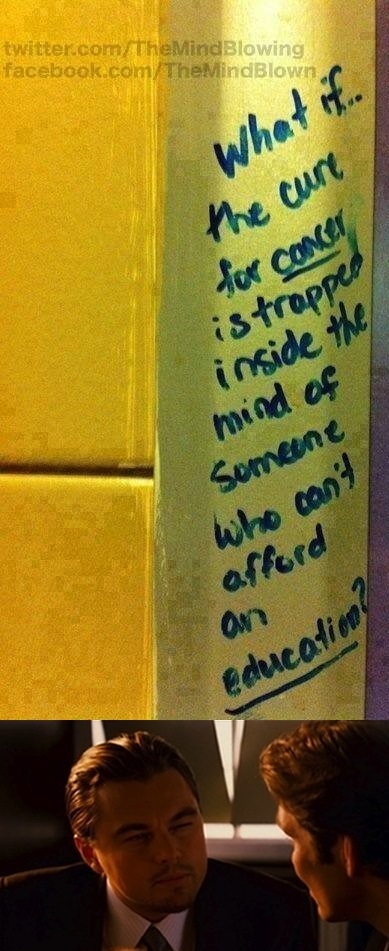 twitter.com/TheMindBlowing
facebook.com/TheMindBlown
What if...
the cure
for cancer
is trapped
inside the
mind of
someone
who can't
afford
an
education?